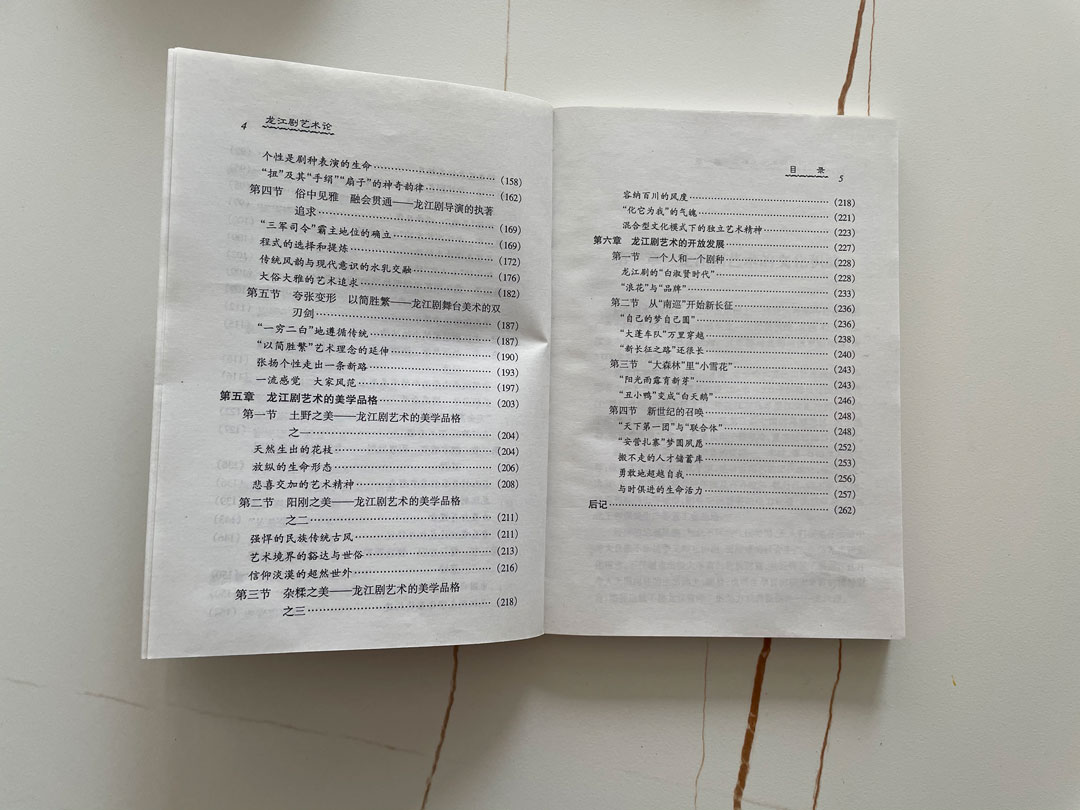 4 龙江剧艺术论
个性是剧种表演的生命……………………(158)
“扭”及其“手绢”“扇子”的神奇韵律……………………(162)
第四节 俗中见雅 融会贯通——龙江剧导演的执著
追求……………………(169)
“三军司令”霸主地位的确立……………………(169)
程式的选择和提炼……………………(172)
传统风韵与现代意识的水乳交融……………………(176)
大俗大雅的艺术追求……………………(182)
第五节 夸张变形 以简胜繁——龙江剧舞台美术的双
刃剑……………………(187)
“一穷二白”地遵循传统……………………(187)
“以简胜繁”艺术理念的延伸……………………(190)
张扬个性走出一条新路……………………(193)
一流感觉 大家风范……………………(197)
第五章 龙江剧艺术的美学品格……………………(203)
第一节 土野之美——龙江剧艺术的美学品格
之一……………………(204)
天然生出的花枝……………………(204)
放纵的生命形态……………………(206)
悲喜交加的艺术精神……………………(208)
第二节 阳刚之美——龙江剧艺术的美学品格
之二……………………(211)
强悍的民族传统古风……………………(211)
艺术境界的豁达与世俗……………………(213)
信仰淡漠的超然世外……………………(216)
第三节 杂糅之美——龙江剧艺术的美学品格
之三……………………(218)
目 录 5
容纳百川的风度……………………(218)
“化它为我”的气魄……………………(221)
混合型文化模式下的独立艺术精神……………………(223)
第六章 龙江剧艺术的开放发展……………………(227)
第一节 一个人和一个剧种……………………(228)
龙江剧的“白淑贤时代”……………………(228)
“浪花”与“品牌”……………………(233)
第二节 从“南巡”开始新长征……………………(236)
“自己的梦自己圆”……………………(236)
“大篷车队”万里穿越……………………(238)
“新长征之路”还很长……………………(240)
第三节 “大森林”里“小雪花”……………………(243)
“阳光雨露育新芽”……………………(243)
“丑小鸭”变成“白天鹅”……………………(246)
第四节 新世纪的召唤……………………(248)
“天下第一团”与“联合体”……………………(248)
“安营扎寨”梦圆夙愿……………………(252)
搬不走的人才储蓄库……………………(253)
勇敢地超越自我……………………(256)
与时俱进的生命活力……………………(257)
后记……………………(262)